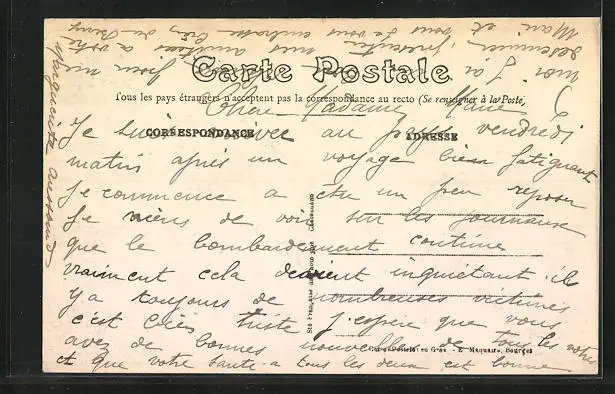 Carte Postale
Tous les pays étrangers n'acceptent pas la correspondance au recto (Se renseigner à la Poste)
CORRESPONDANCE
ADRESSE
Chère Madame Marie
Je suis arrivée au pays vendredi
matin après un voyage bien fatiguant
Je commence a être un peu reposer
Je viens de voir sur les journaux
que le bombardement continue
vraiment cela devient inquiétant il
y a toujours de nombreuses victimes
c'est bien triste j'espère que vous
avez de bonnes nouvelles de tous les votres
et que votre santé a tous les deux est bonne
moi j'ai
presenter mes amitiées a votre
Mari et vous je vous embrasse bien
Marguerite
Sté Française de Châteauneuf
Cartes Postales en Gros - E. Maquaire, Bourges